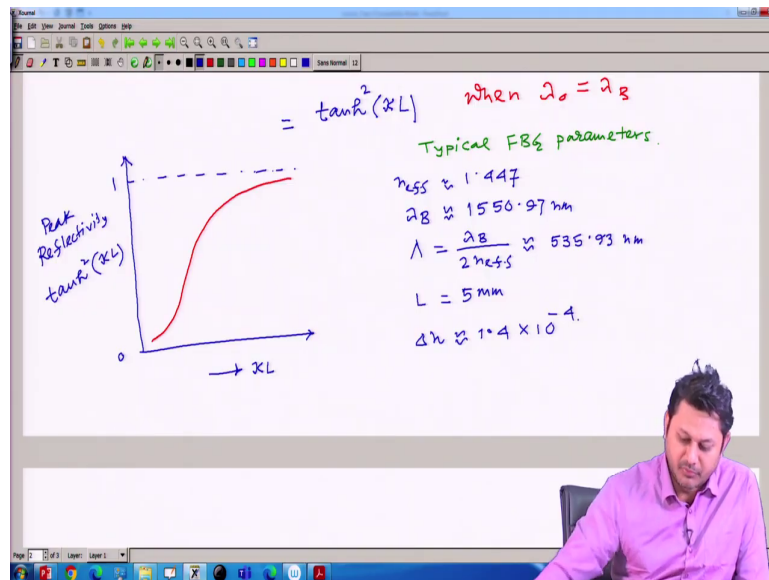 Xournal
File Edit View Journal Tools Options Help
Sans Normal 12
= tanh²(ϰL) when λ₀ = λB
Typical FBG parameters.
neff ≈ 1.447
λB ≈ 1550.97 nm
Λ = λB / 2neff ≈ 535.93 nm
L = 5 mm
Δn ≈ 1.4 × 10⁻⁴.
1
Peak
Reflectivity
tanh²(ϰL)
0
→ ϰL
Page 2 of 3 Layer: Layer 1